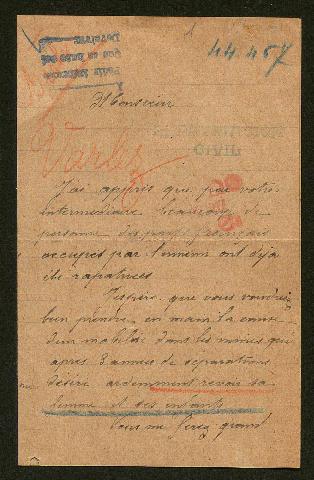 44.457
Monsieur
Varlez
CIVIL
J'ai appris que par votre
intermediaire beaucoup de
personne des pays francais
occupes par l'ennemi ont deja
ete rapatriees
J'espère que vous voudrez
bien prendre en main la cause
d'un mobilisé dans les mines qui
apres 3 annees de séparations
désire ardemment revoir sa
femme et ses enfants
Vous me ferez grand